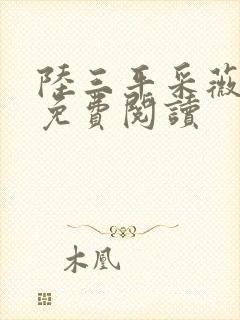 陸三平采薇
免費閱讀
木凰